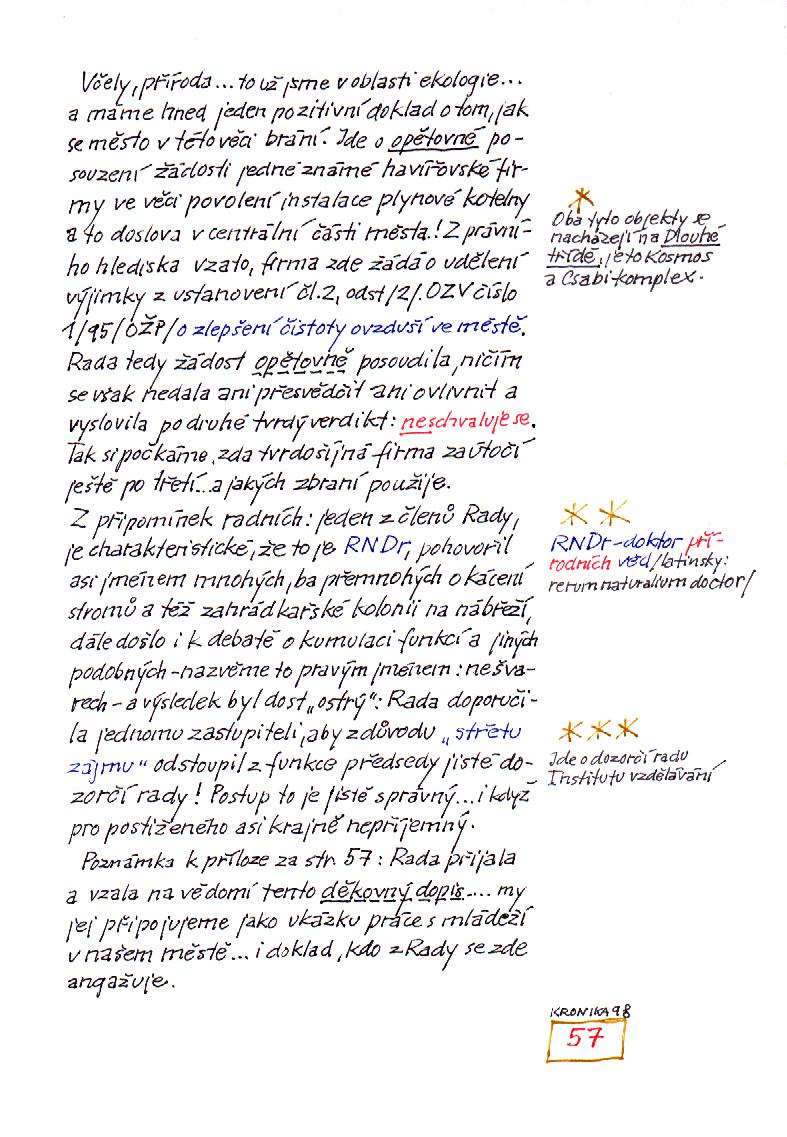 Včely, příroda... to už jsme v oblasti ekologie...
a máme hned jeden pozitivní doklad o tom, jak
se město v této věci brání. Jde o opětovné po-
souzení žádosti jedné známé havířovské fir-
my ve věci povolení instalace plynové kotelny
a to doslova v centrální části města! Z právní-
ho hlediska vzato, firma zde žádá o udělení
výjimky z ustanovení čl.2, odst/2/.OZV číslo
1/95/OŽP/o zlepšení čistoty ovzduší ve městě.
Rada tedy žádost opětovně posoudila, ničím
se však nedala ani přesvědčit ani ovlivnit a
vyslovila po druhé tvrdý verdikt: neschvaluje se.
Tak si počkáme, zda tvrdošíjná firma zaútočí
ještě po třetí...a jakých zbraní použije.
Z připomínek radních: jeden z členů Rady,
je charakteristické, že to je RNDr, pohovořil
asi jménem mnohých, ba přemnohých o kácení
stromů a též zahrádkářské kolonii na nábřeží,
dále došlo i k debatě o kumulaci funkcí a jiných
podobných - nazvěme to pravým jménem: nešva-
rech - a výsledek byl dost „ostrý": Rada doporuči-
la jednomu zastupiteli, aby z důvodu „střetu
zájmu" odstoupil z funkce předsedy jisté do-
zorčí rady! Postup to je jistě správný... i když
pro postiženého asi krajně nepříjemný.
Poznámka k příloze za str. 57: Rada přijala
a vzala na vědomí tento děkovný dopis.... my
jej připojujeme jako ukázku práce s mládeží
v našem městě... i doklad, kdo z Rady se zde
angažuje.
*
Oba tyto objekty se
nacházejí na Dlouhé
třídě, je to Kosmos
a Csabi-komplex.
* *
RNDr-doktor pří-
rodních věd/latinsky:
rerum naturalium doctor/
* * *
Jde o dozorčí radu
Institutu vzdělávání
KRONIKA 98
57